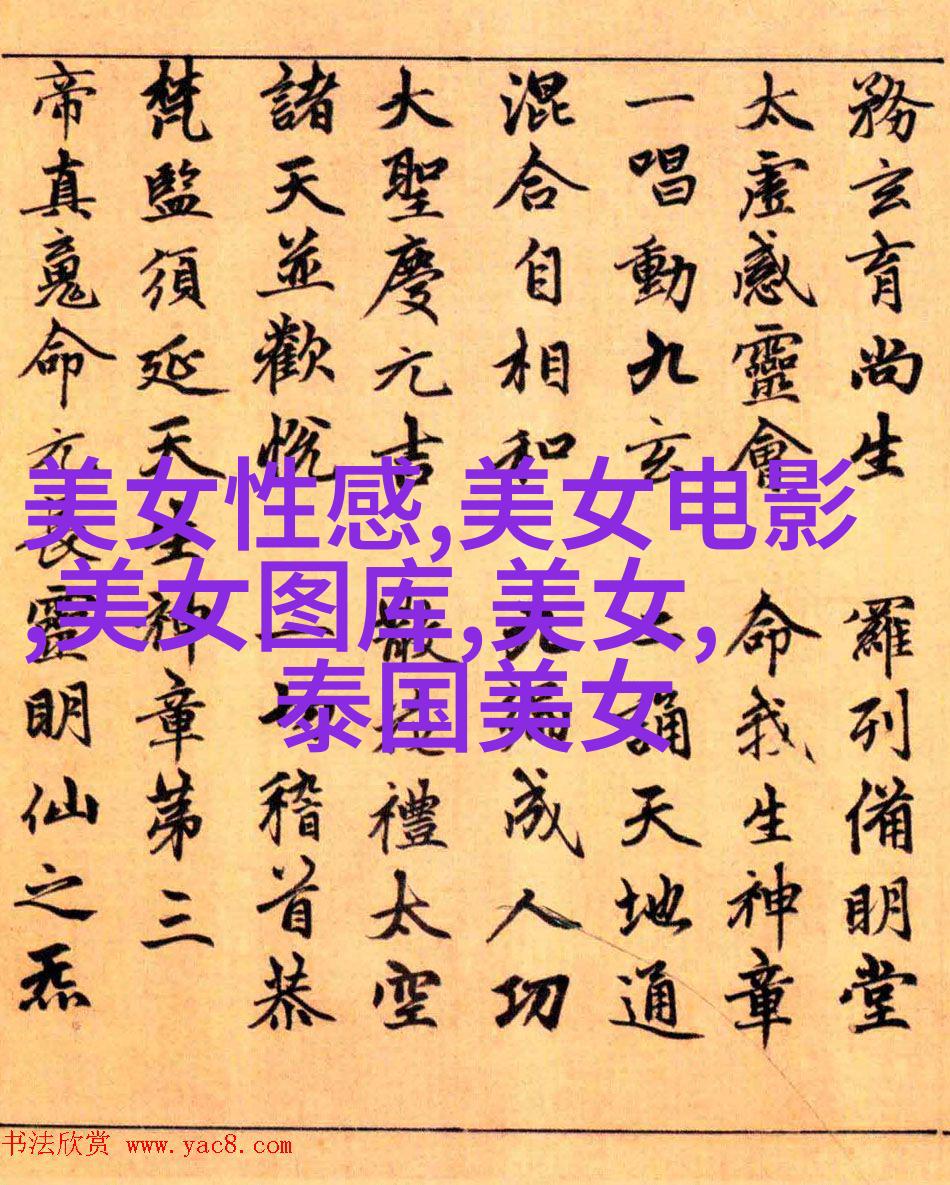 務玄育尚生 羅列備明堂
太虛感靈會 命我生神章
一唱動九玄 二誦天地通
混合自相和 九遍成人功
大聖慶元吉 散花禮太空
諸天並歡悅 一切稽首恭
梵監須延天生神章第三
帝真魂命元長靈明仙之炁
美女性感,美女电影
,美女图库,美女,
泰国美女
书法欣赏 www.yac8.com